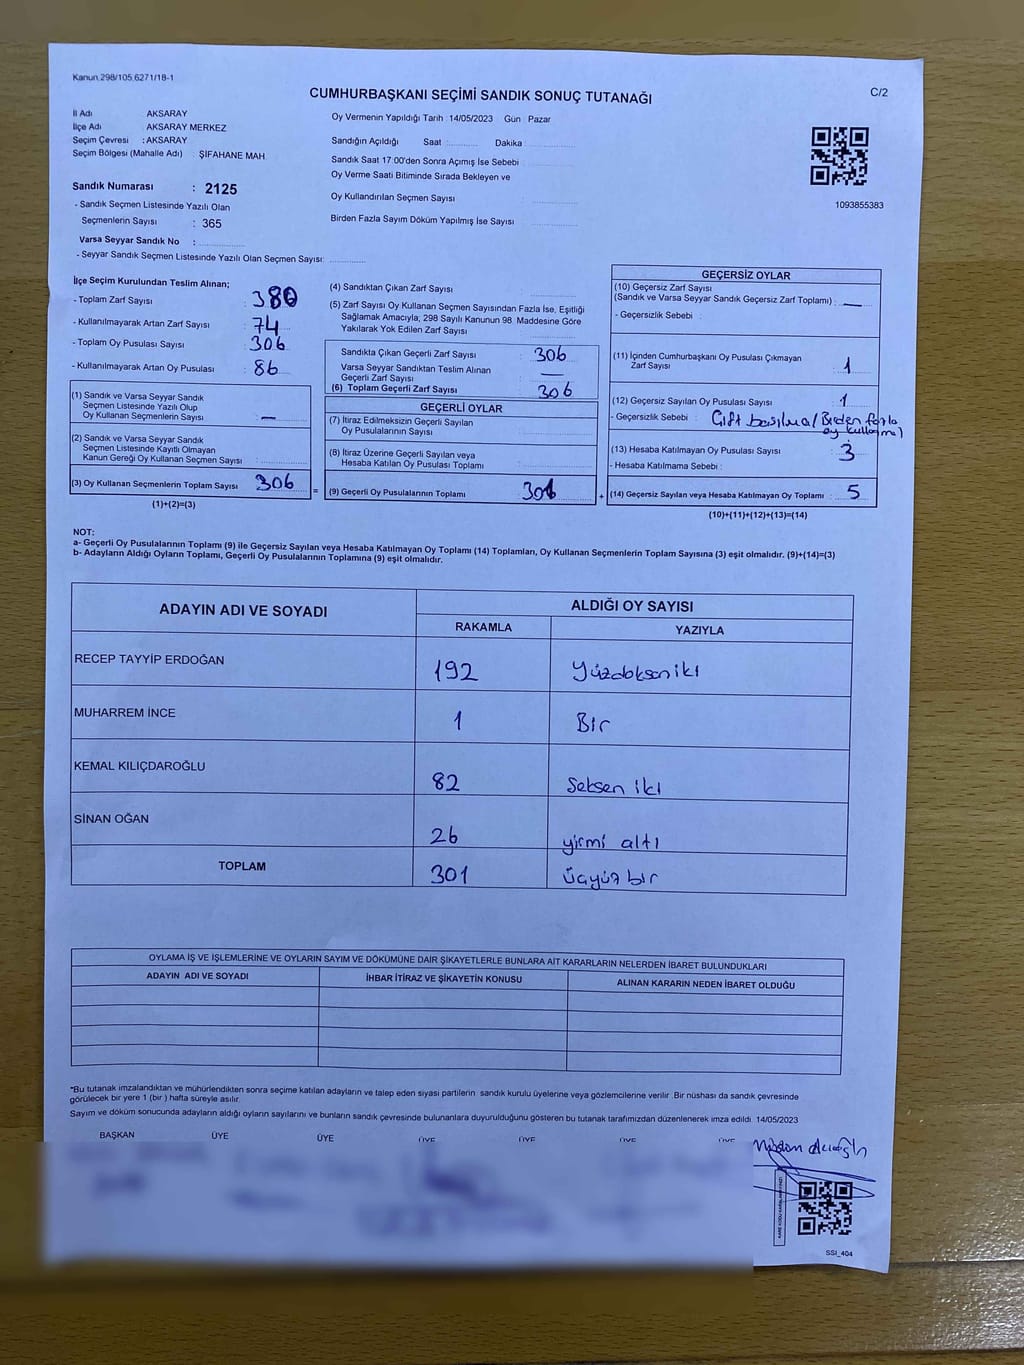 Kanun 298/105.6271/18-1
CUMHURBAŞKANI SEÇİMİ SANDIK SONUÇ TUTANAĞI
C/2
İl Adı AKSARAY
İlçe Adı AKSARAY MERKEZ
Seçim Çevresi : AKSARAY
Seçim Bölgesi (Mahalle Adı) : ŞİFAHANE MAH.
Oy Vermenin Yapıldığı Tarih : 14/05/2023 Gün : Pazar
Sandığın Açıldığı Saat : Dakika :
Sandık Saat 17:00'den Sonra Açımış İse Sebebi :
Oy Verme Saati Bitiminde Sırada Bekleyen ve
Oy Kullandırılan Seçmen Sayısı
Birden Fazla Sayım Döküm Yapılmış İse Sayısı
1093855383
Sandık Numarası : 2125
- Sandık Seçmen Listesinde Yazılı Olan
Seçmenlerin Sayısı : 365
Varsa Seyyar Sandık No :
- Seyyar Sandık Seçmen Listesinde Yazılı Olan Seçmen Sayısı:
İlçe Seçim Kurulundan Teslim Alınan;
- Toplam Zarf Sayısı : 380
- Kullanılmayarak Artan Zarf Sayısı : 74
- Toplam Oy Pusulası Sayısı : 306
- Kullanılmayarak Artan Oy Pusulası : 86
(1) Sandık ve Varsa Seyyar Sandık
Seçmen Listesinde Yazılı Olup
Oy Kullanan Seçmenlerin Sayısı : —
(2) Sandık ve Varsa Seyyar Sandık
Seçmen Listesinde Kayıtlı Olmayan
Kanun Gereği Oy Kullanan Seçmen Sayısı :
(3) Oy Kullanan Seçmenlerin Toplam Sayısı : 306
(1)+(2)=(3)
(4) Sandıktan Çıkan Zarf Sayısı
(5) Zarf Sayısı Oy Kullanan Seçmen Sayısından Fazla İse, Eşitliği
Sağlamak Amacıyla; 298 Sayılı Kanunun 98. Maddesine Göre
Yakılarak Yok Edilen Zarf Sayısı
Sandıkta Çıkan Geçerli Zarf Sayısı : 306
Varsa Seyyar Sandıktan Teslim Alınan
Geçerli Zarf Sayısı : —
(6) Toplam Geçerli Zarf Sayısı : 306
GEÇERLİ OYLAR
(7) İtiraz Edilmeksizin Geçerli Sayılan
Oy Pusulalarının Sayısı
(8) İtiraz Üzerine Geçerli Sayılan veya
Hesaba Katılan Oy Pusulası Toplamı
= (9) Geçerli Oy Pusulalarının Toplamı 301
GEÇERSİZ OYLAR
(10) Geçersiz Zarf Sayısı
(Sandık ve Varsa Seyyar Sandık Geçersiz Zarf Toplamı) : —
- Geçersizlik Sebebi :
(11) İçinden Cumhurbaşkanı Oy Pusulası Çıkmayan
Zarf Sayısı : 1
(12) Geçersiz Sayılan Oy Pusulası Sayısı : 1
- Geçersizlik Sebebi : Çift basılma / Birden fazla
oy kullanma)
(13) Hesaba Katılmayan Oy Pusulası Sayısı : 3
- Hesaba Katılmama Sebebi :
+ (14) Geçersiz Sayılan veya Hesaba Katılmayan Oy Toplamı : 5
(10)+(11)+(12)+(13)=(14)
NOT:
a- Geçerli Oy Pusulalarının Toplamı (9) ile Geçersiz Sayılan veya Hesaba Katılmayan Oy Toplamı (14) Toplamları, Oy Kullanan Seçmenlerin Toplam Sayısına (3) eşit olmalıdır. (9)+(14)=(3)
b- Adayların Aldığı Oyların Toplamı, Geçerli Oy Pusulalarının Toplamına (9) eşit olmalıdır.
ADAYIN ADI VE SOYADI
ALDIĞI OY SAYISI
RAKAMLA YAZIYLA
RECEP TAYYİP ERDOĞAN 192 Yüzdoksaniki
MUHARREM İNCE 1 Bir
KEMAL KILIÇDAROĞLU 82 Seksen iki
SİNAN OĞAN 26 yirmi altı
TOPLAM 301 üçyüz bir
OYLAMA İŞ VE İŞLEMLERİNE VE OYLARIN SAYIM VE DÖKÜMÜNE DAİR ŞİKAYETLERLE BUNLARA AİT KARARLARIN NELERDEN İBARET BULUNDUKLARI
ADAYIN ADI VE SOYADI İHBAR İTİRAZ VE ŞİKAYETİN KONUSU ALINAN KARARIN NEDEN İBARET OLDUĞU
*Bu tutanak imzalandıktan ve mühürlendikten sonra seçime katılan adayların ve talep eden siyasi partilerin sandık kurulu üyelerine veya gözlemcilerine verilir. Bir nüshası da sandık çevresinde
görülecek bir yere 1 (bir) hafta süreyle asılır.
Sayım ve döküm sonucunda adayların aldığı oyların sayılarını ve bunların sandık çevresinde bulunanlara duyurulduğunu gösteren bu tutanak tarafımızdan düzenlenerek imza edildi. 14/05/2023
BAŞKAN ÜYE ÜYE ÜYE ÜYE ÜYE ÜYE
SSI_404